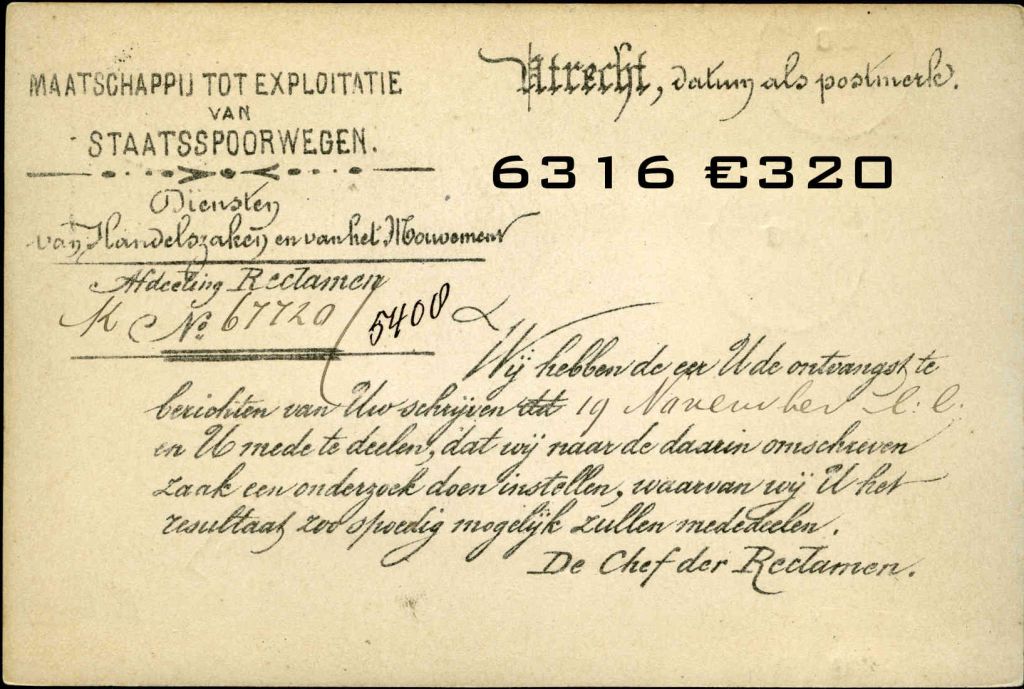 MAATSCHAPPIJ TOT EXPLOITATIE
VAN
STAATSSPOORWEGEN.
Diensten
van Handelszaken en van het Mouvement
Afdeeling Reclamen
K No 67720
5400
Utrecht, datum als postmerk.
6316 €320
Wij hebben de eer U de ontvangst te
berichten van Uw schrijven dd 19 November l.l.
en U mede te deelen, dat wij naar de daarin omschreven
zaak een onderzoek doen instellen, waarvan wij U het
resultaat zoo spoedig mogelijk zullen mededeelen.
De Chef der Reclamen.